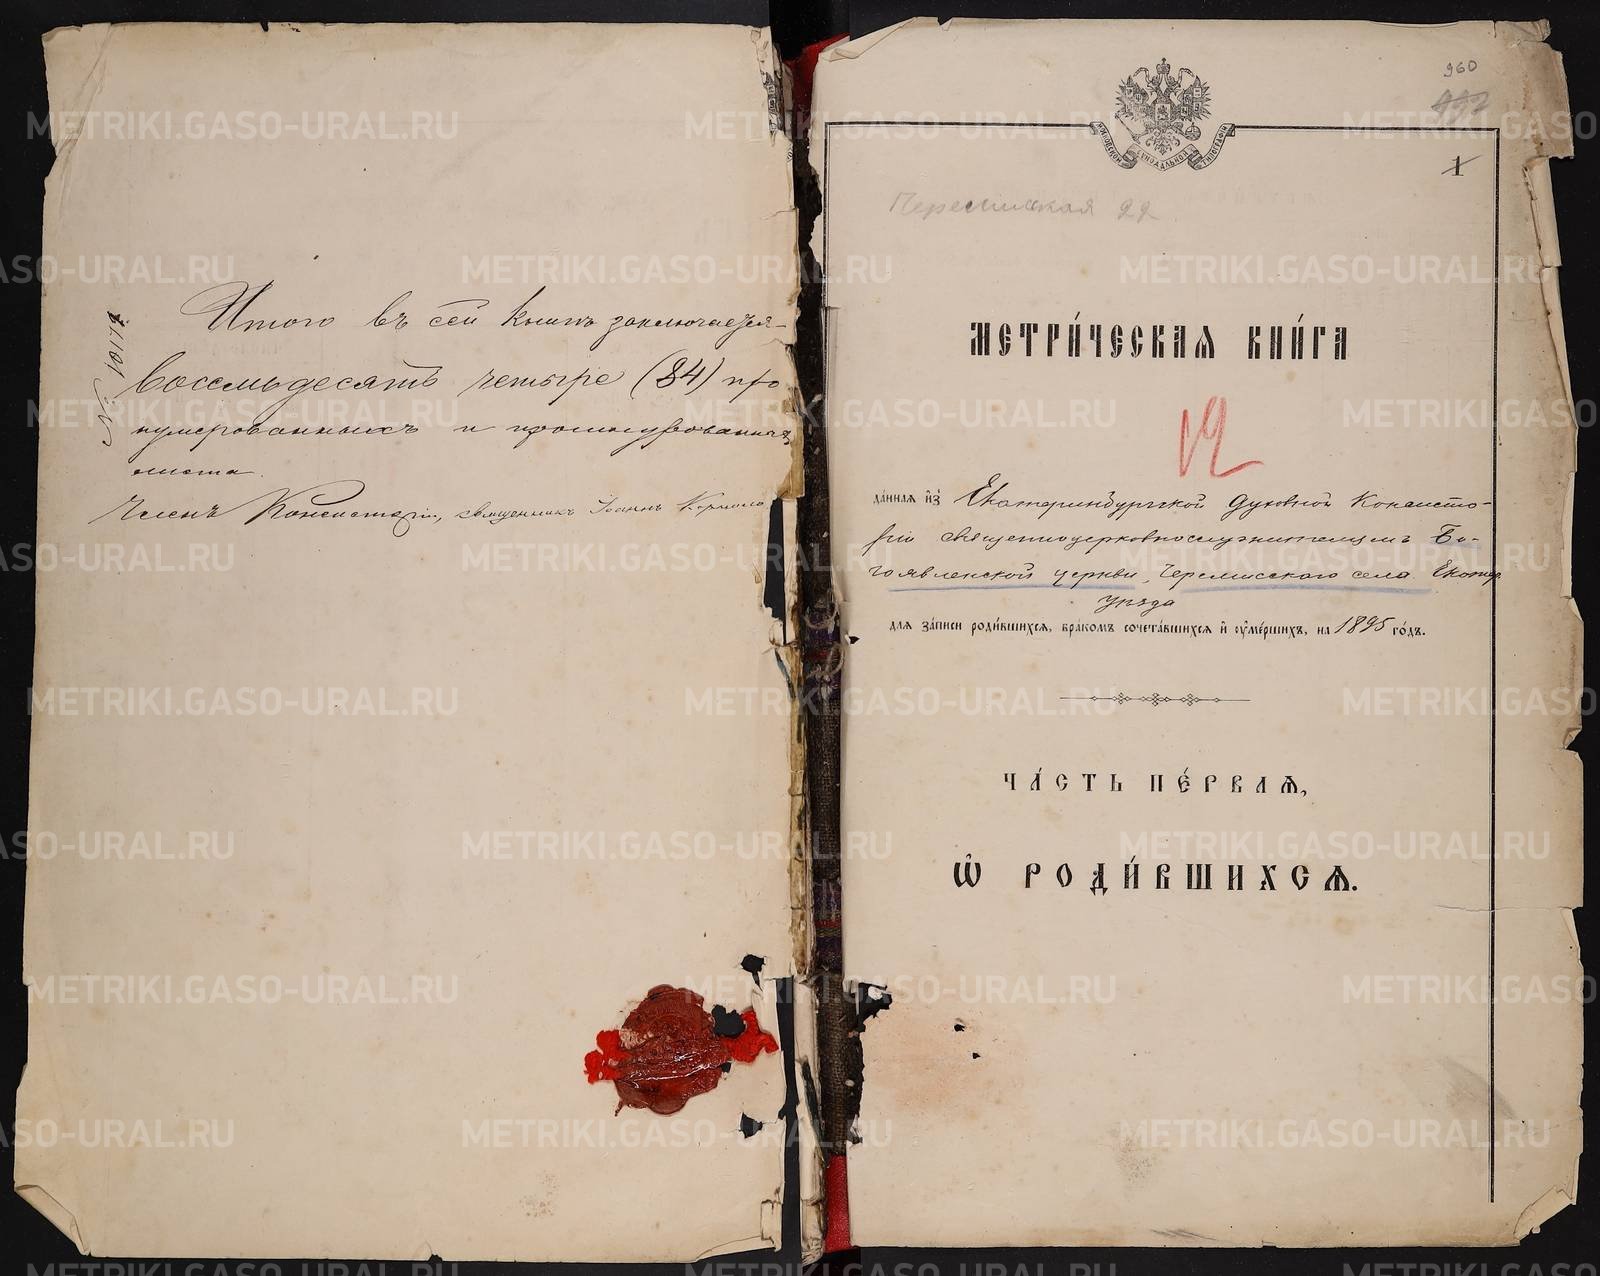 № 10174
Итого въ сей книгѣ заключается
восемьдесятъ четыре (84) про
нумерованныхъ и прошнурованныхъ
листа.
Членъ Консисторіи, священникъ Іоаннъ
960
1
МОСКОВСКОЙ СѴНОДАЛЬНОЙ ТИПОГРАФІИ
Черемисская 22
МЕТРИ́ЧЕСКАѦ КНИ́ГА
12
да́нная и҆з̾ Екатеринбургской Духовной Консисто-
ріи священноцерковнослужителямъ Бо-
гоявленской церкви, Черемисскаго села Екатер.
уѣзда
для за́писи роди́вшихся, бра́комъ сочета́вшихся и҆ ѹ҆ме́ршихъ, на 1895 го́дъ.
ЧА́СТЬ ПЕ́РВАѦ,
Ѡ҆ РОДИ́ВШИХСѦ.
METRIKI.GASO-URAL.RU